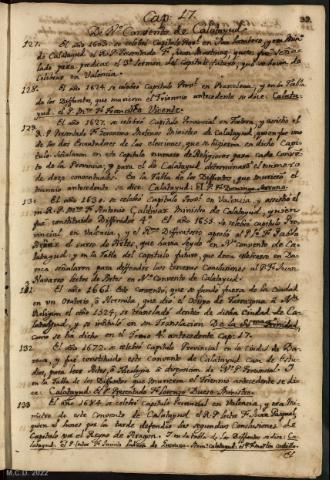 Cap. 17.
39.
De Nro Convento de Calatayud.
127. El año 1603. se celebró Capitulo Provl en San Lamberto, y era Minro
de Calatayud el
lado para predicar el Sermon del Capitulo futuro, que se havia de
celebrar en Valencia.
128. El año 1624. se celebró Capitulo Provl en Barcelona, y en la Tabla
de los Diffuntos, que murieron el Triennio antecedente se dice: Calata-
yud. el P. Fr. Francisco Vicente.
129. El año 1627. se celebró Capitulo Provincial en Tortosa, y assistió el
R. P. Presentado Fr. Geronimo Ministro de Calatayud, quien fue uno
de los dos Escutadores de las elecciones, que se hizieron en dicho Capi-
tulo. señalaron en este Capitulo numero de Religiosos para cada Conven-
to de la Provincia; y para el de Calatayud determinaron el numero
de doze conventuales. En la Tabla de los Diffuntos, que murieron el
triennio antecedente se dice: Calatayud: el P. Fr. Domingo
130. El año 1630. se celebró Capitulo Provl en Valencia, y assistió el
M. R. P. Mro Fr. Antonio Ministro de Calatayud, y quien
fue constituido Diffinidor 4º. El año 1633. se celebró Capitulo Pro-
vincial, en Valencia, y el Rmo Diffinitorio aprobó al P. Fr. Pablo
el curso de Artes, que havia leydo en Nro Convento de Ca-
latayud: y en la Tabla del Capitulo futuro, que devia celebrarse en Dae-
roca señalaron para defender las terceras Conclusiones al P. Fr. Juan
Navarro Lector de Artes en Nro Convento de Calatayud.
131. El año 1661. este Convento, que se fundó fuera de la ciudad
en un Oratorio, ò Hermita, que dió el Obispo de Tarazona à Nra
Religion el año 1595, se transladó dentro de dicha Ciudad de Ca-
latayud, y se intituló en su Translacion De la SSma Trinidad,
como se ha dicho en el Tomo 4º antecedente Cap. 17.
132. El año 1672. se celebró Capitulo Provincial en la ciudad de Da-
roca, y fue constituido este Convento de Calatayud casa de Estu-
dios, para leer Artes, ò Theologia à disposicion de N. P. Provincial. I
en la Tabla de los Diffuntos que murieron el Triennio antecedente se di-
ce: Calatayud. El P. Presentado Fr. Lorenzo Ministro.
133. El año 1684. se celebró Capitulo Provincial en Valencia, y era Mi-
nistro de este Convento de Calatayud el R. P. Lector Fr. Juan Pasqual,
quien el lunes por la tarde defendió las segundas Conclusiones de
Capitulo por el Reyno de Aragon. I en la tabla de los Diffuntos se dice: Ca-
latayud. el P. Lector Fr.
M.C.D. 2022